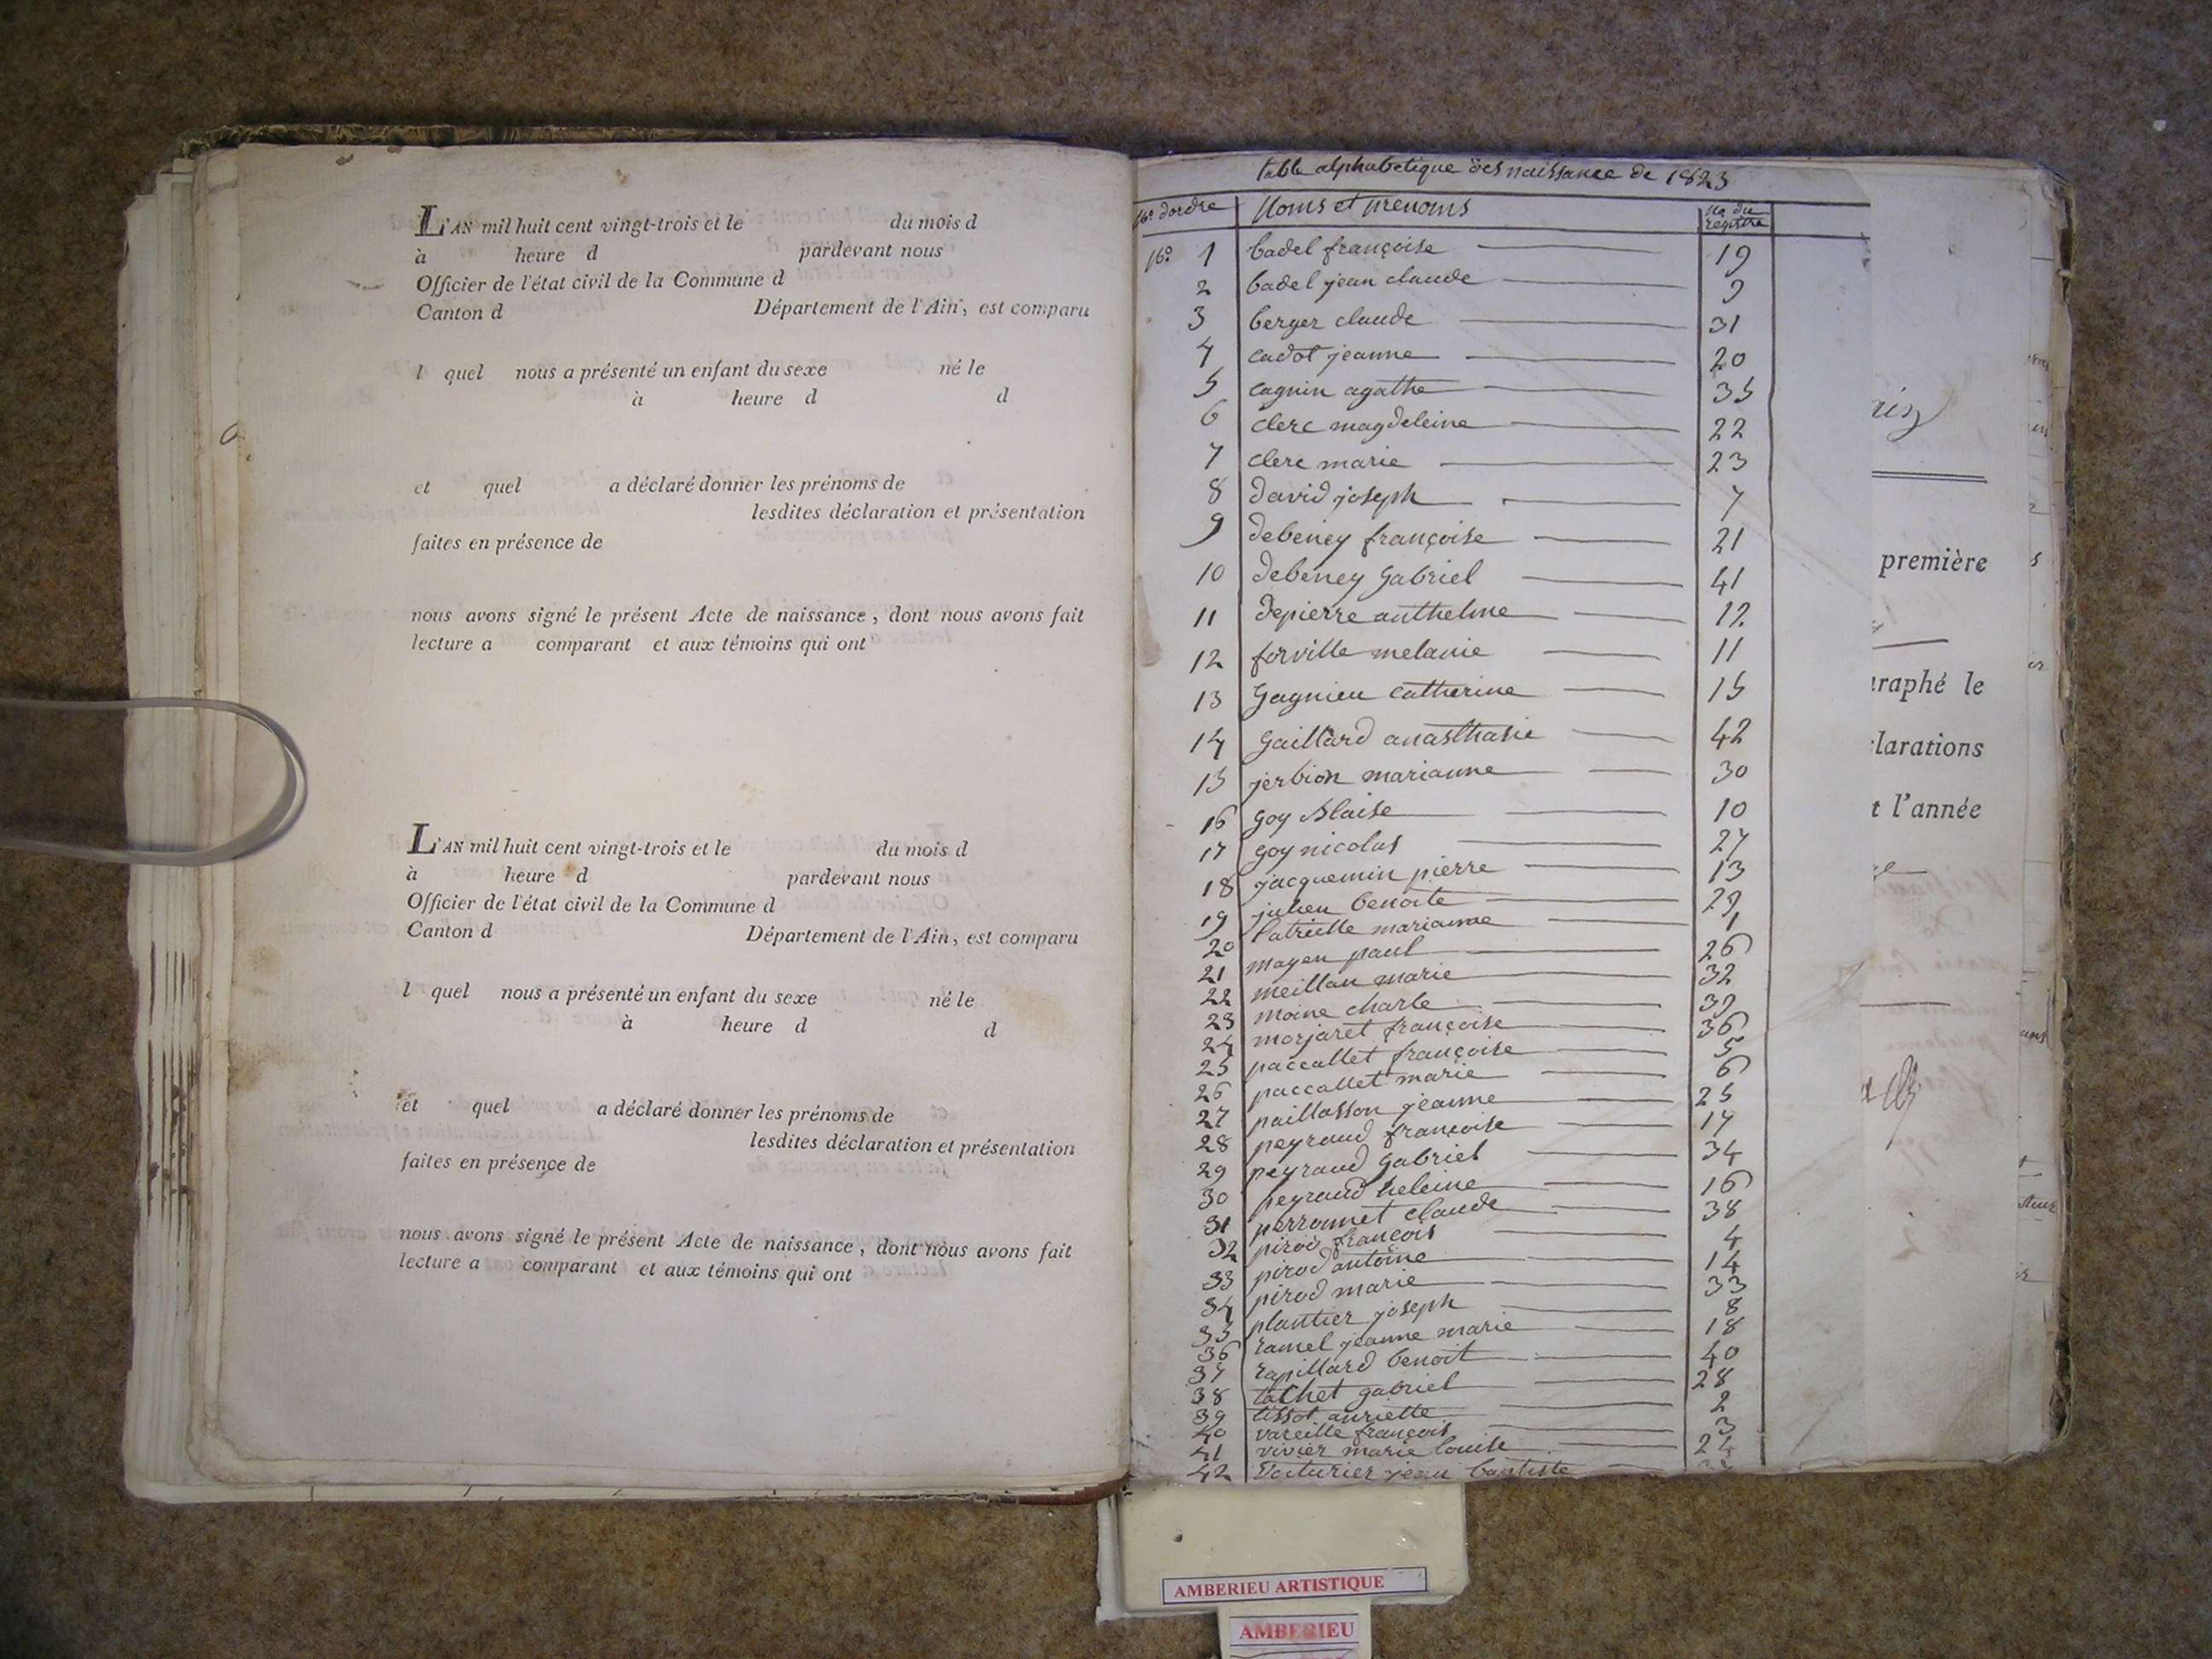 L'AN mil huit cent vingt-trois et le du mois d
à heure d pardevant nous
Officier de l'état civil de la Commune d
Canton d Département de l'Ain, est comparu
l quel nous a présenté un enfant du sexe né le
à heure d d
et quel a déclaré donner les prénoms de
lesdites déclaration et présentation
faites en présence de
nous avons signé le présent Acte de naissance, dont nous avons fait
lecture a comparant et aux témoins qui ont
L'AN mil huit cent vingt-trois et le du mois d
à heure d pardevant nous
Officier de l'état civil de la Commune d
Canton d Département de l'Ain, est comparu
l quel nous a présenté un enfant du sexe né le
à heure d d
et quel a déclaré donner les prénoms de
lesdites déclaration et présentation
faites en présence de
nous avons signé le présent Acte de naissance, dont nous avons fait
lecture a comparant et aux témoins qui ont
table alphabetique des naissance de 1823
No. d'ordre Noms et prenoms No. du registre
No. 1 badel françoise 19
2 badel jean claude 9
3 berger claude 31
4 cadot jeanne 20
5 cagnin agathe 35
6 clerc magdeleine 22
7 clerc marie 23
8 david joseph 7
9 debeney françoise 21
10 debeney gabriel 41
11 depierre anthelme 12
12 forville melanie 11
13 gagnieu catherine 15
14 gaillard anasthasie 42
15 jerbion marianne 30
16 goy Blaise 10
17 goy nicolas 27
18 jacquemin pierre 13
19 julien benoite 29
20 latrielle marianne 1
21 mayen paul 26
22 meillan marie 32
23 moine charle 39
24 morjaret françoise 36
25 paccallet françoise 5
26 paccallet marie 6
27 paillasson jeanne 25
28 peyraud françoise 17
29 peyraud gabriel 34
30 peyraud heleine 16
31 perronnet claude 38
32 pirod françois 4
33 pirod antoine 14
34 pirod marie 33
35 plantier joseph 8
36 ramel jeanne marie 18
37 rapillard benoit 40
38 tachet gabriel 28
39 tissot auriette 2
40 vareille françois 3
41 vivier marie louise 24
42 Voiturier jean baptiste
première
raphé le
larations
t l'année
AMBERIEU ARTISTIQUE
AMBERIEU